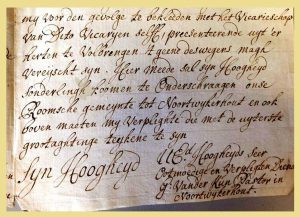 my vor den gevolge te bekleeden met het Vicarieschop
van Dito Vicaryen selffs presenteerende uyt er
herten te Volbrengen t geene deswegens magh
Vereijscht syn. Hier meede sal syn Hoogheyd
Sonderlingh koomen te Onderschraagen onse
Roomsche gemeynte tot Noortwykerhout en ook
boven maeten my Verpligte die met de uyterste
grootagtinge teykene te syn
Syn Hoogheyd
UEd. Hoogheyds Seer
Ootmoedige en Verpligten Diena
Vander Kun Pastor in
Noortwykerhout.